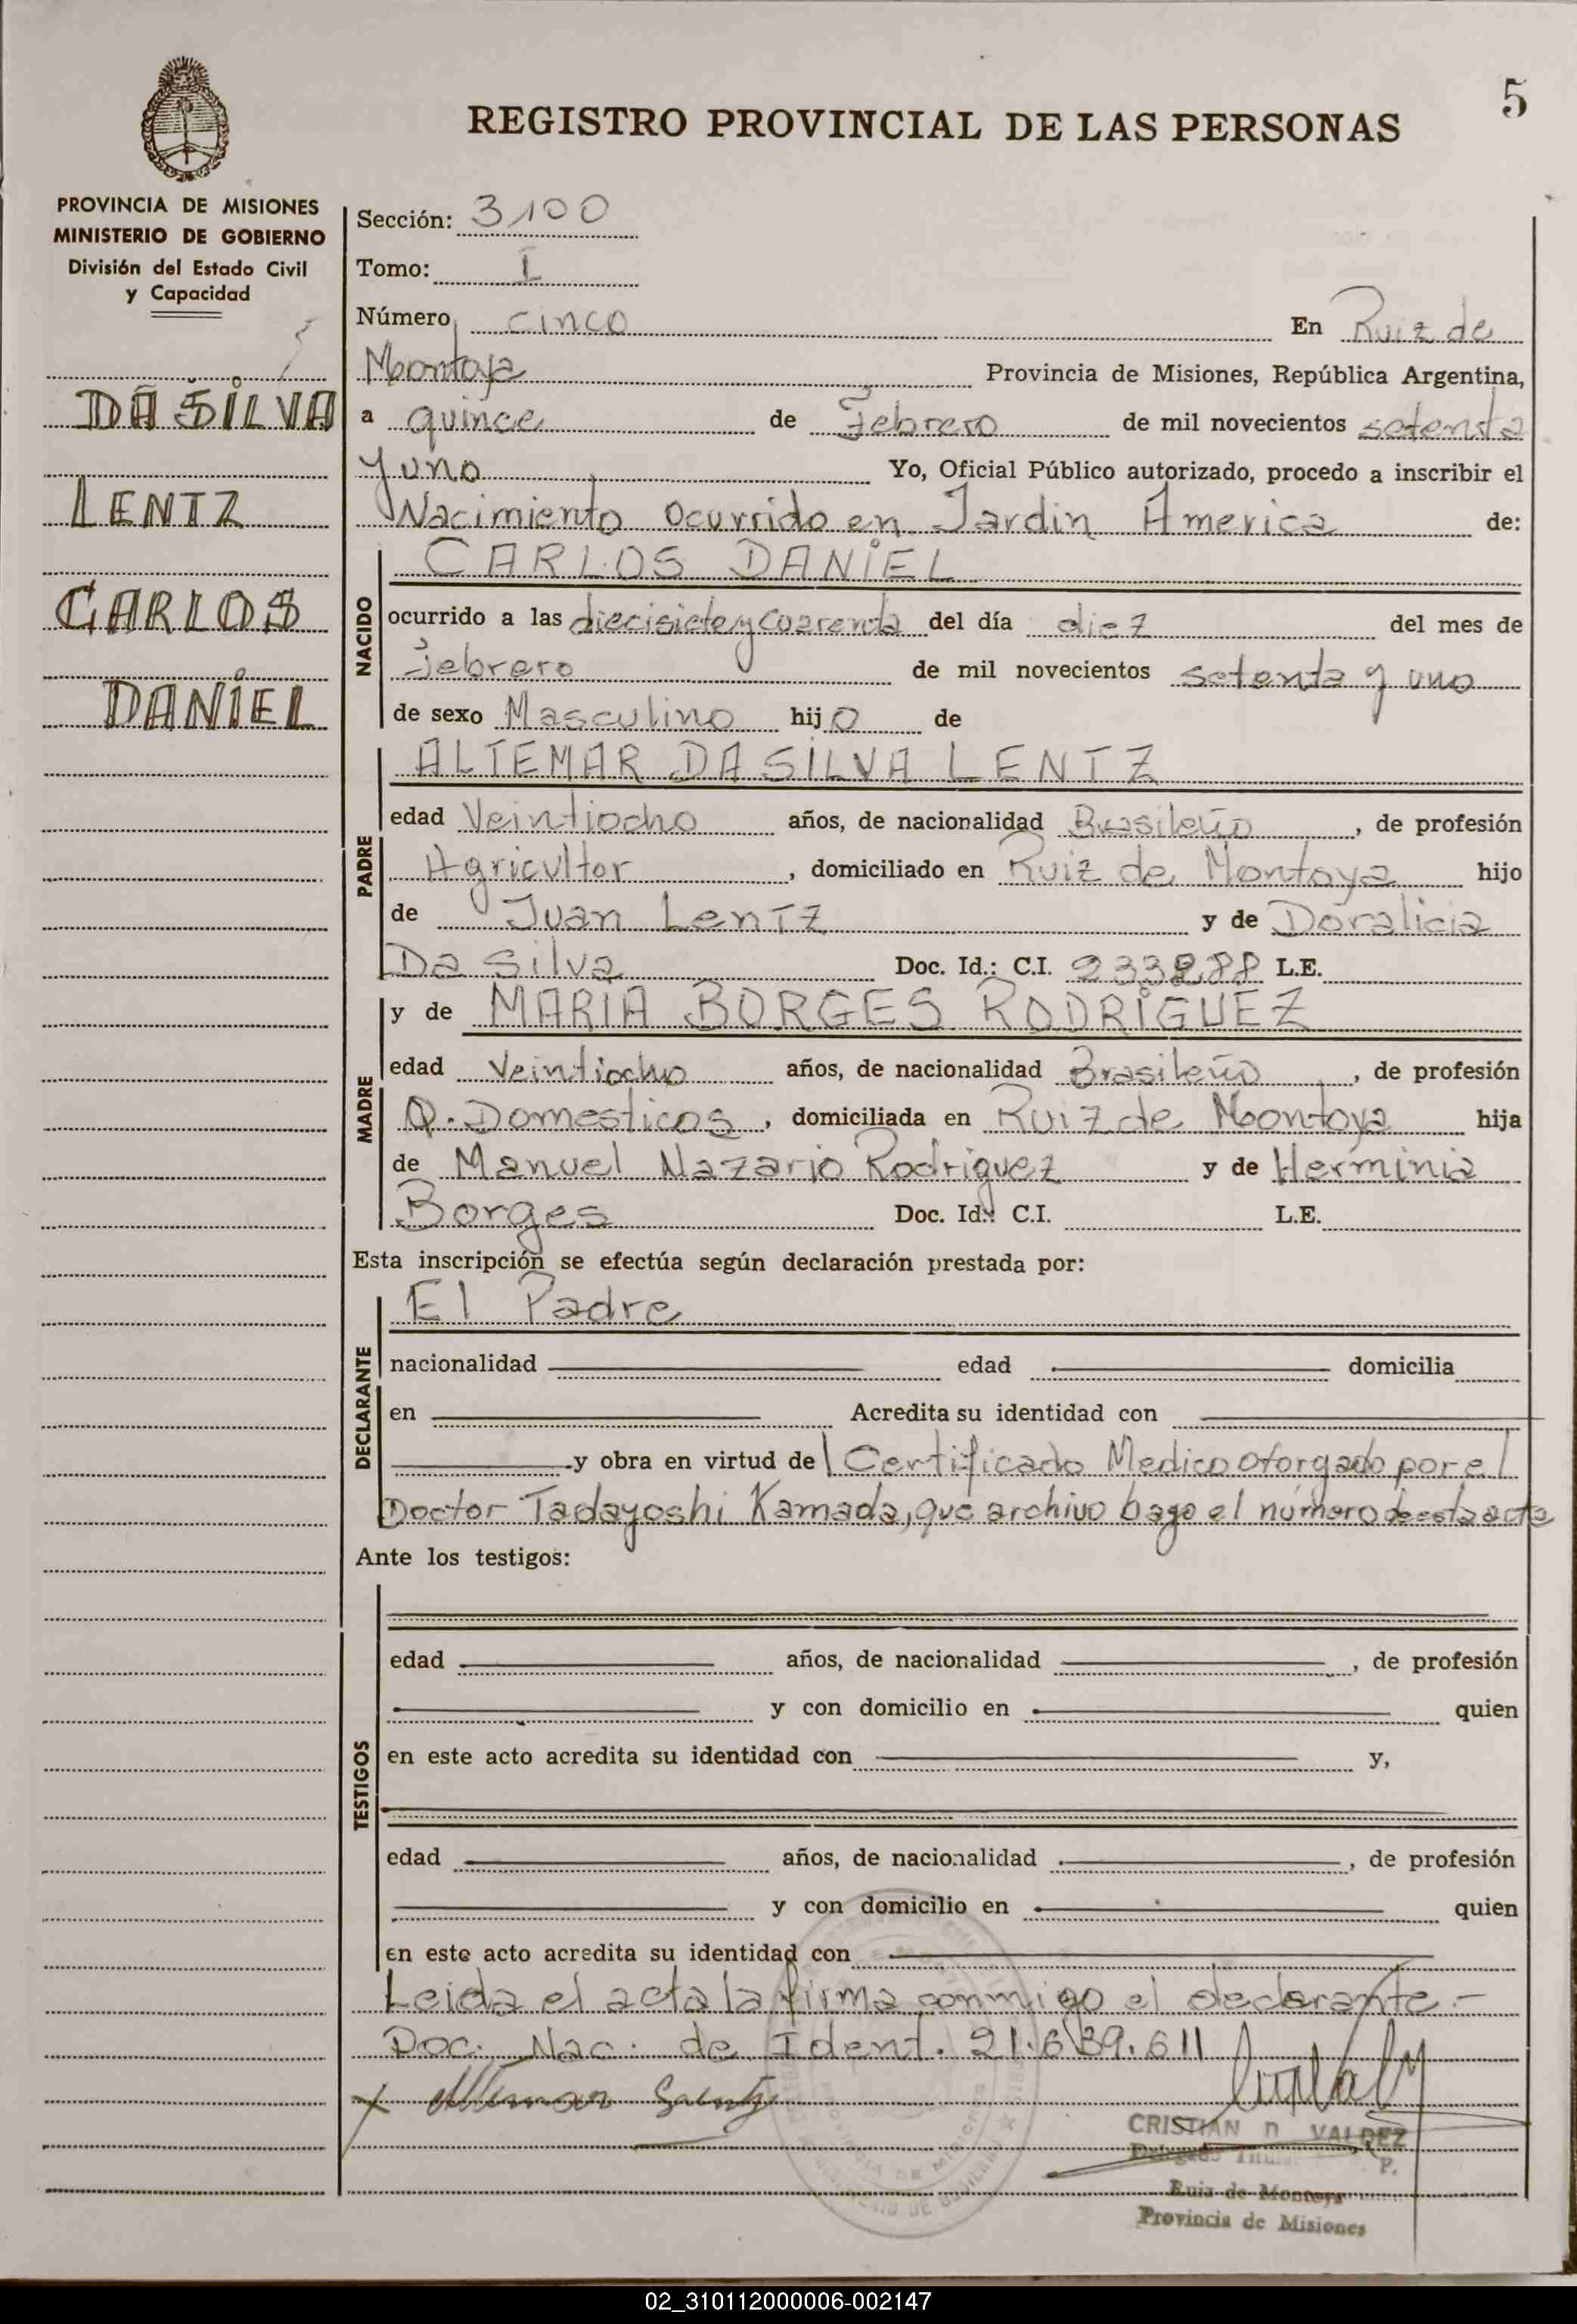 5
REGISTRO PROVINCIAL DE LAS PERSONAS
PROVINCIA DE MISIONES
MINISTERIO DE GOBIERNO
División del Estado Civil
y Capacidad
DA SILVA
LENTZ
CARLOS
DANIEL
Sección: 3100
Tomo: I
Número cinco En Ruiz de
Montoya Provincia de Misiones, República Argentina,
a quince de Febrero de mil novecientos setenta
y uno Yo, Oficial Público autorizado, procedo a inscribir el
Nacimiento ocurrido en Jardin America de:
NACIDO
CARLOS DANIEL
ocurrido a las diecisiete y cuarenta del día diez del mes de
Febrero de mil novecientos setenta y uno
de sexo Masculino hijo de
PADRE
ALTEMAR DA SILVA LENTZ
edad Veintiocho años, de nacionalidad Brasileño, de profesión
Agricultor, domiciliado en Ruiz de Montoya hijo
de Juan Lentz y de Doralicia
Da Silva Doc. Id.: C.I. 233288 L.E.
MADRE
y de MARIA BORGES RODRIGUEZ
edad Veintiocho años, de nacionalidad Brasileño, de profesión
Q. Domesticos, domiciliada en Ruiz de Montoya hija
de Manuel Nazario Rodriguez y de Herminia
Borges Doc. Id.: C.I. L.E.
Esta inscripción se efectúa según declaración prestada por:
DECLARANTE
El Padre
nacionalidad edad domicilia
en Acredita su identidad con
y obra en virtud de Certificado Medico otorgado por el
Doctor Tadayoshi Kamada, que archivo bago el número de esta acta
Ante los testigos:
TESTIGOS
edad años, de nacionalidad , de profesión
y con domicilio en quien
en este acto acredita su identidad con y,
edad años, de nacionalidad , de profesión
y con domicilio en quien
en este acto acredita su identidad con
Leida el acta la firma conmigo el declarante.-
Doc. Nac. de Ident. 21.639.611
CRISTIAN D. VALDEZ
Delegado Titular
Ruiz de Montoya
Provincia de Misiones
02_310112000006-002147